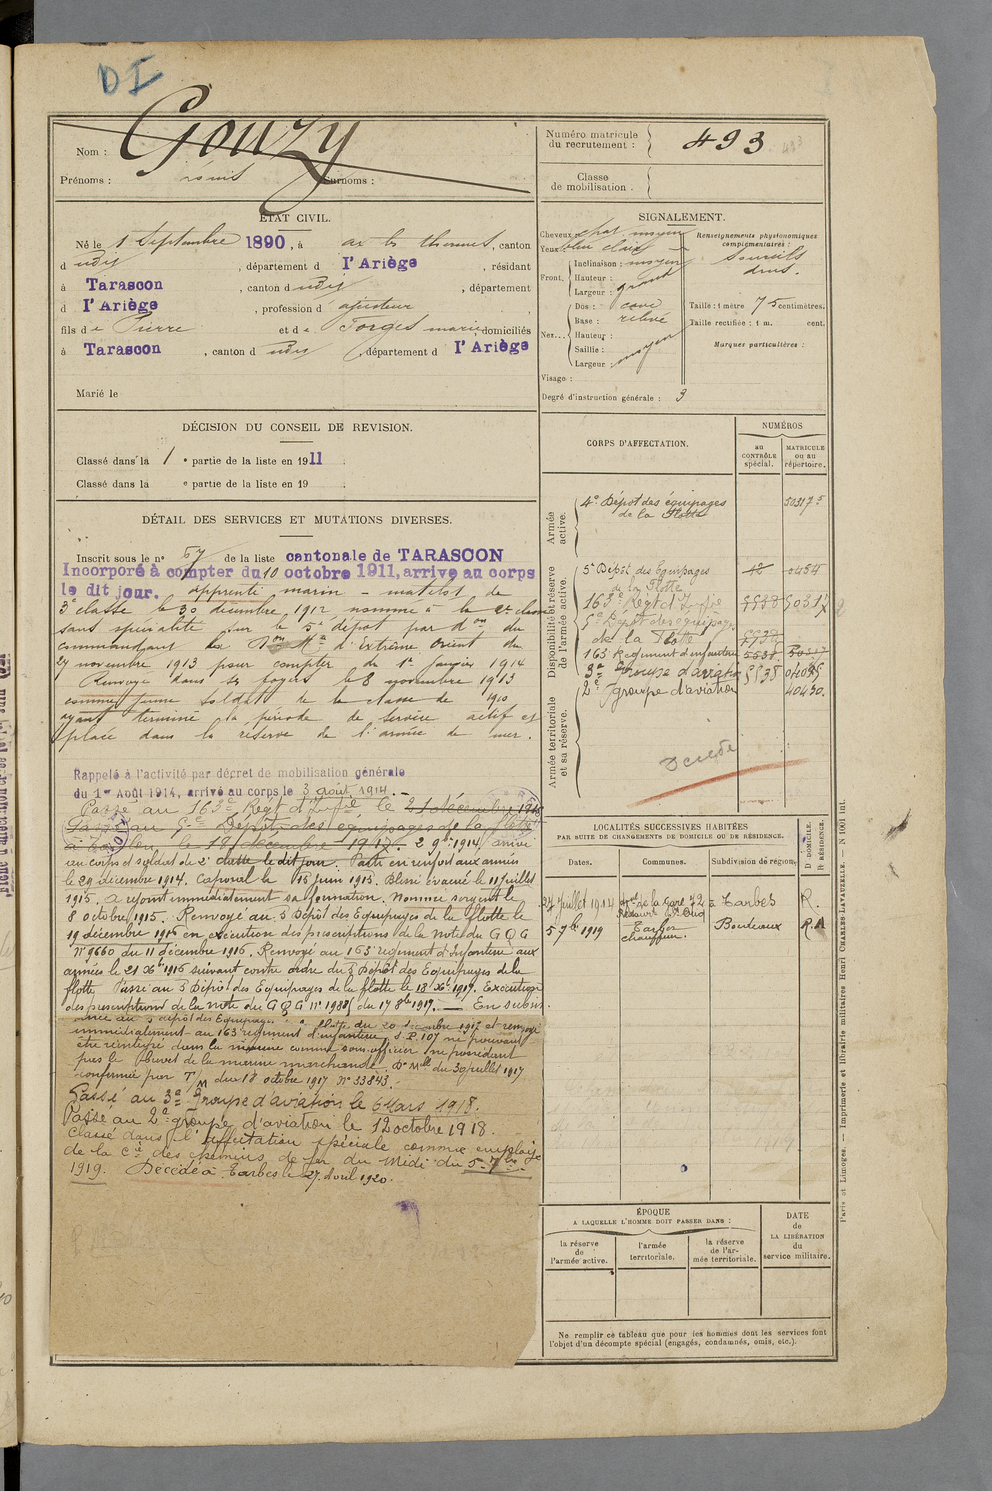 DI
Nom : Gouzy
Prénoms : Louis Surnoms :
ÉTAT CIVIL.
Né le 1 Septembre 1890, à ax les thermes, canton
d udit, département d l'Ariège, résidant
à Tarascon, canton d udit, département
d l'Ariège, profession d'ajusteur,
fils de Pierre et de Forges marie, domiciliés
à Tarascon, canton d udit, département d l'Ariège
Marié le
DÉCISION DU CONSEIL DE REVISION.
Classé dans la 1e partie de la liste en 1911.
Classé dans la e partie de la liste en 19 .
DÉTAIL DES SERVICES ET MUTATIONS DIVERSES.
Inscrit sous le no 57 de la liste cantonale de TARASCON
Incorporé à compter du 10 octobre 1911, arrive au corps
le dit jour. apprenti marin - matelot de
3e classe le 30 décembre 1912 nommé à la 2e classe
sans spécialité sur le 5e dépôt par don du
commandant la Don Mle d'Extrême Orient du
27 novembre 1913 pour compter du 1er janvier 1914
Renvoyé dans ses foyers le 8 novembre 1913
comme jeune soldat de la classe de 1910
ayant terminé sa période de service actif et
placé dans la réserve de l'armée de mer.
Rappelé à l'activité par décret de mobilisation générale
du 1er Août 1914, arrivé au corps le 3 août 1914.
Passé au 163e Regt d'Infie le 21 décembre 1916
Passé au 5e Dépôt des équipages de la flotte
à Toulon le 19 décembre 1917. 2 9bre 1914 arrivé
au corps et soldat de 2e classe le dit jour. Parti en renfort aux armées
le 29 décembre 1914. Caporal le 15 juin 1915. Blessé évacué le 11 juillet
1915. a rejoint immédiatement sa formation. Nommé sergent le
8 octobre 1915. Renvoyé au 5 Dépôt des Equipages de la flotte le
19 décembre 1916 en exécution des prescriptions de la note du G Q G
N° 9660 du 11 décembre 1916. Renvoyé au 163e régiment d'Infanterie aux
armées le 21 Xbre 1916 suivant contre ordre du 5 Dépôt des Equipages de la
flotte Passé au 5 Dépôt des Equipages de la flotte le 18 Xbre 1917. Exécution
des prescriptions de la note du G Q G N° 1988 du 17 8bre 1917. — En
au 5 dépôt des Equipages flotte du 20 décembre 1917 et renvoyé
immédiatement au 163 régiment d'infanterie S.P. 107 ne pouvant
être réintégré dans la marine comme sous-officier ne possédant
pas le Brevet de la marine marchande. Don Mlle du 30 juillet 1917
confirmée par T/M du 18 octobre 1917 N° 33843.
Passé au 3e Groupe d'aviation le 6 Mars 1918.
Passé au 2e groupe d'aviation le 12 octobre 1918.
Classé dans l'affectation spéciale comme employé
de la Cie des chemins de fer du Midi du 5-7bre
1919. Décédé à Tarbes le 27 Avril 1920.
Numéro matricule
du recrutement : 493
Classe
de mobilisation .
SIGNALEMENT.
Cheveux chat moyen
Yeux bleu clair
Front. Inclinaison : moyen
Hauteur :
Largeur : grand
Nez... Dos : cave
Base : relevé
Hauteur :
Saillie :
Largeur : moyen
Visage :
Degré d'instruction générale : 3
Renseignements physionomiques
complémentaires :
Sourcils
drus.
Taille : 1 mètre 75 centimètres.
Taille rectifiée : 1 m. cent.
Marques particulières :
CORPS D'AFFECTATION.
NUMÉROS
au
CONTRÔLE
spécial.
MATRICULE
ou au
répertoire.
Armée
active.
4e Dépôt des équipages
de la Flotte 50317 5
Disponibilité et réserve
de l'armée active.
5e Dépôt des Equipages
de la Flotte
163e Regt d'Infie 5538 50317
5e Dépôt des équipages
de la Flotte 5538
163 Régiment d'infanterie 5538 50317
3e Groupe d'aviation 5538
2e groupe d'aviation 40430.
Armée territoriale
et sa réserve.
Décédé
LOCALITÉS SUCCESSIVES HABITÉES
PAR SUITE DE CHANGEMENTS DE DOMICILE OU DE RÉSIDENCE.
Dates.
Communes.
Subdivision de région.
D DOMICILE.
R RÉSIDENCE.
24 Juillet 1914 de la Gare 72 à Tarbes R.
5 7bre 1919 Tarbes Bordeaux R.A
chauffeur.
ÉPOQUE
A LAQUELLE L'HOMME DOIT PASSER DANS :
la réserve
de
l'armée active.
l'armée
territoriale.
la réserve
de l'ar-
mée territoriale.
DATE
de
LA LIBÉRATION
du
service militaire.
Ne remplir ce tableau que pour les hommes dont les services font
l'objet d'un décompte spécial (engagés, condamnés, omis, etc.).
Paris et Limoges. — Imprimerie et librairie militaires Henri CHARLES-LAVAUZELLE. — N 1001 int.